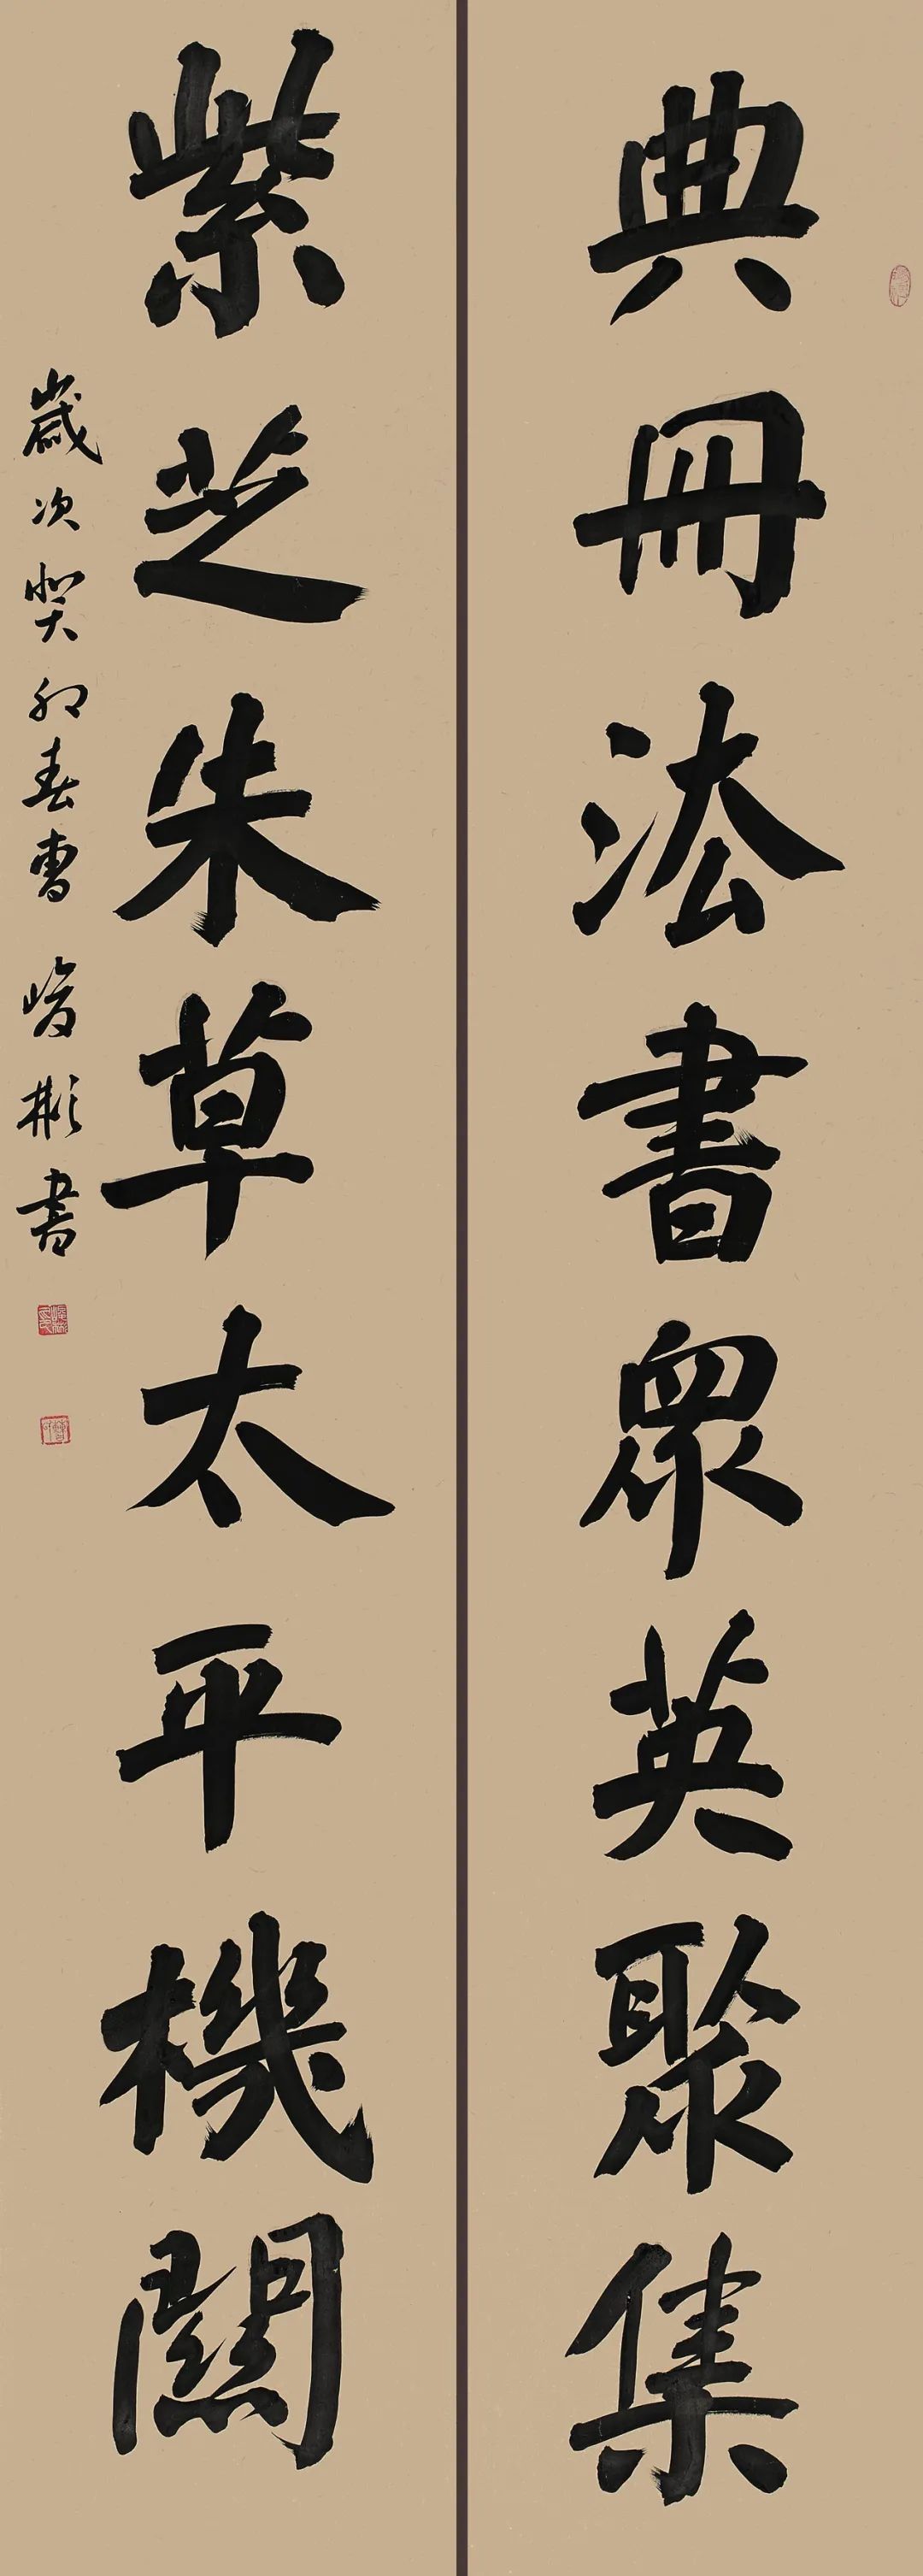 典冊法書眾英聚集
紫芝朱草太平機關
歲次癸卯春曹峻彬書